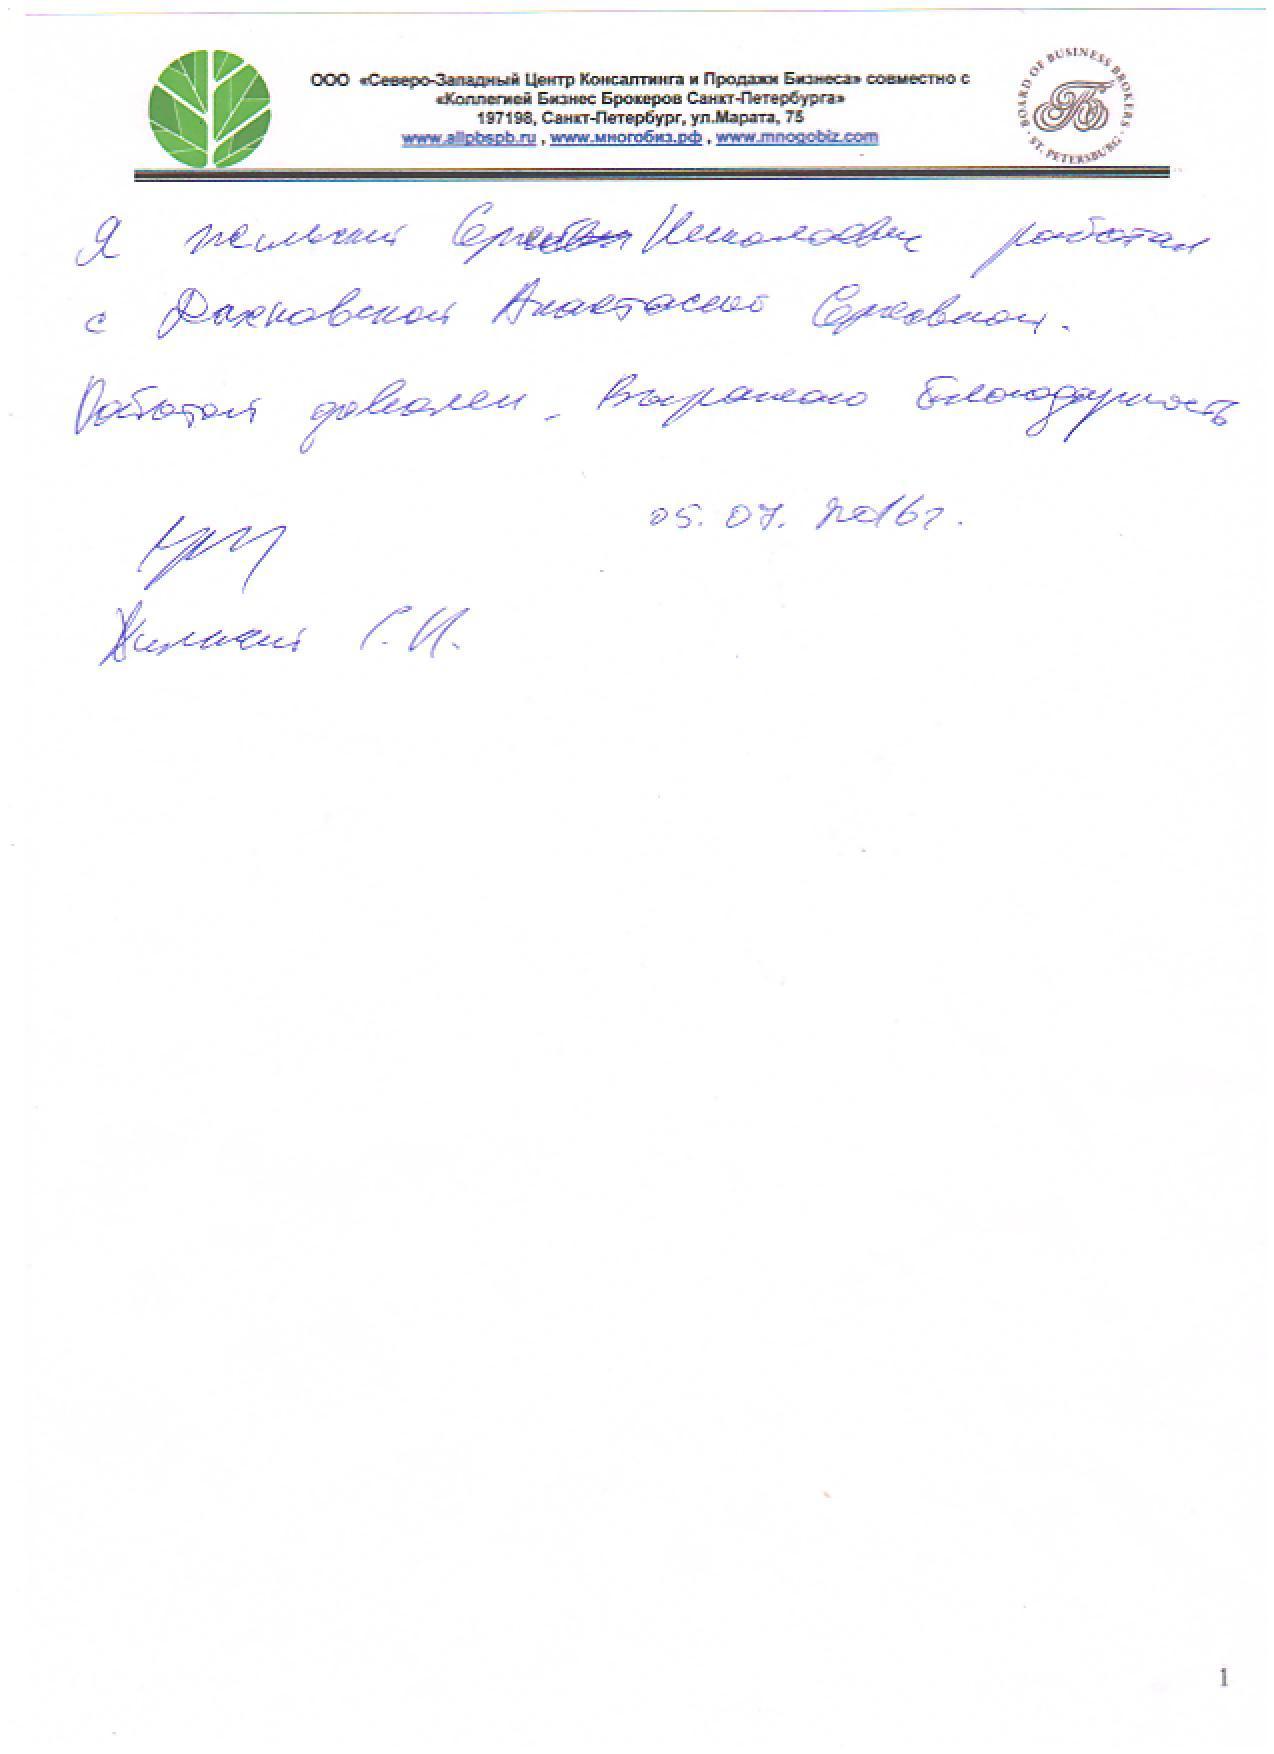 ООО «Северо-Западный Центр Консалтинга и Продажи Бизнеса» совместно с
«Коллегией Бизнес Брокеров Санкт-Петербурга»
197198, Санкт-Петербург, ул.Марата, 75
www.allpbspb.ru , www.многобиз.рф , www.mnogobiz.com
BOARD OF BUSINESS BROKERS · ST. PETERSBURG ·
Я Николаевич работал
с Анастасией Сергеевной.
Работой доволен. Выражаю благодарность
05.07.2016г.
С.Н.
1